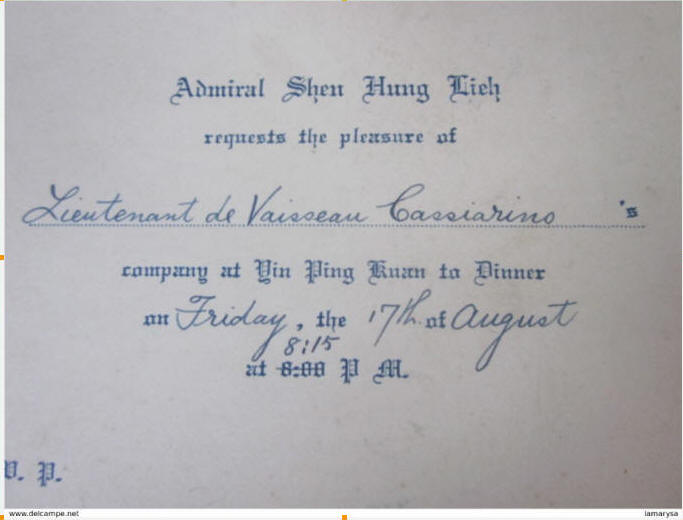 Admiral Shen Hung Lieh
requests the pleasure of
Lieutenant de Vaisseau Cassiarino 's
company at Yin Ping Kuan to Dinner
on Friday, the 17th of August
8:15
at 8:00 P M.
V. P.
www.delcampe.net
lamarysa